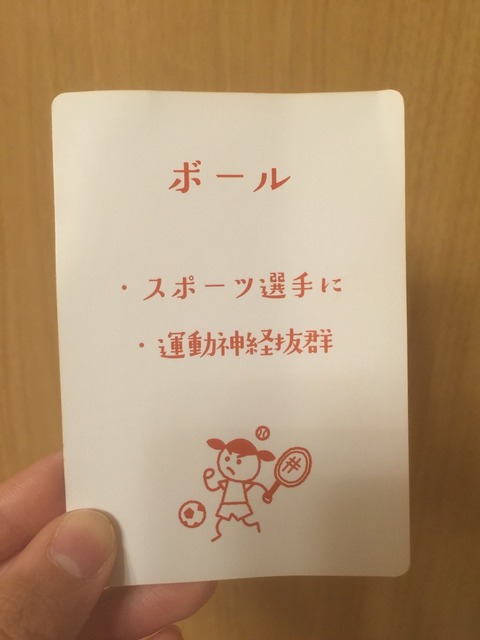 ボール
・スポーツ選手に
・運動神経抜群